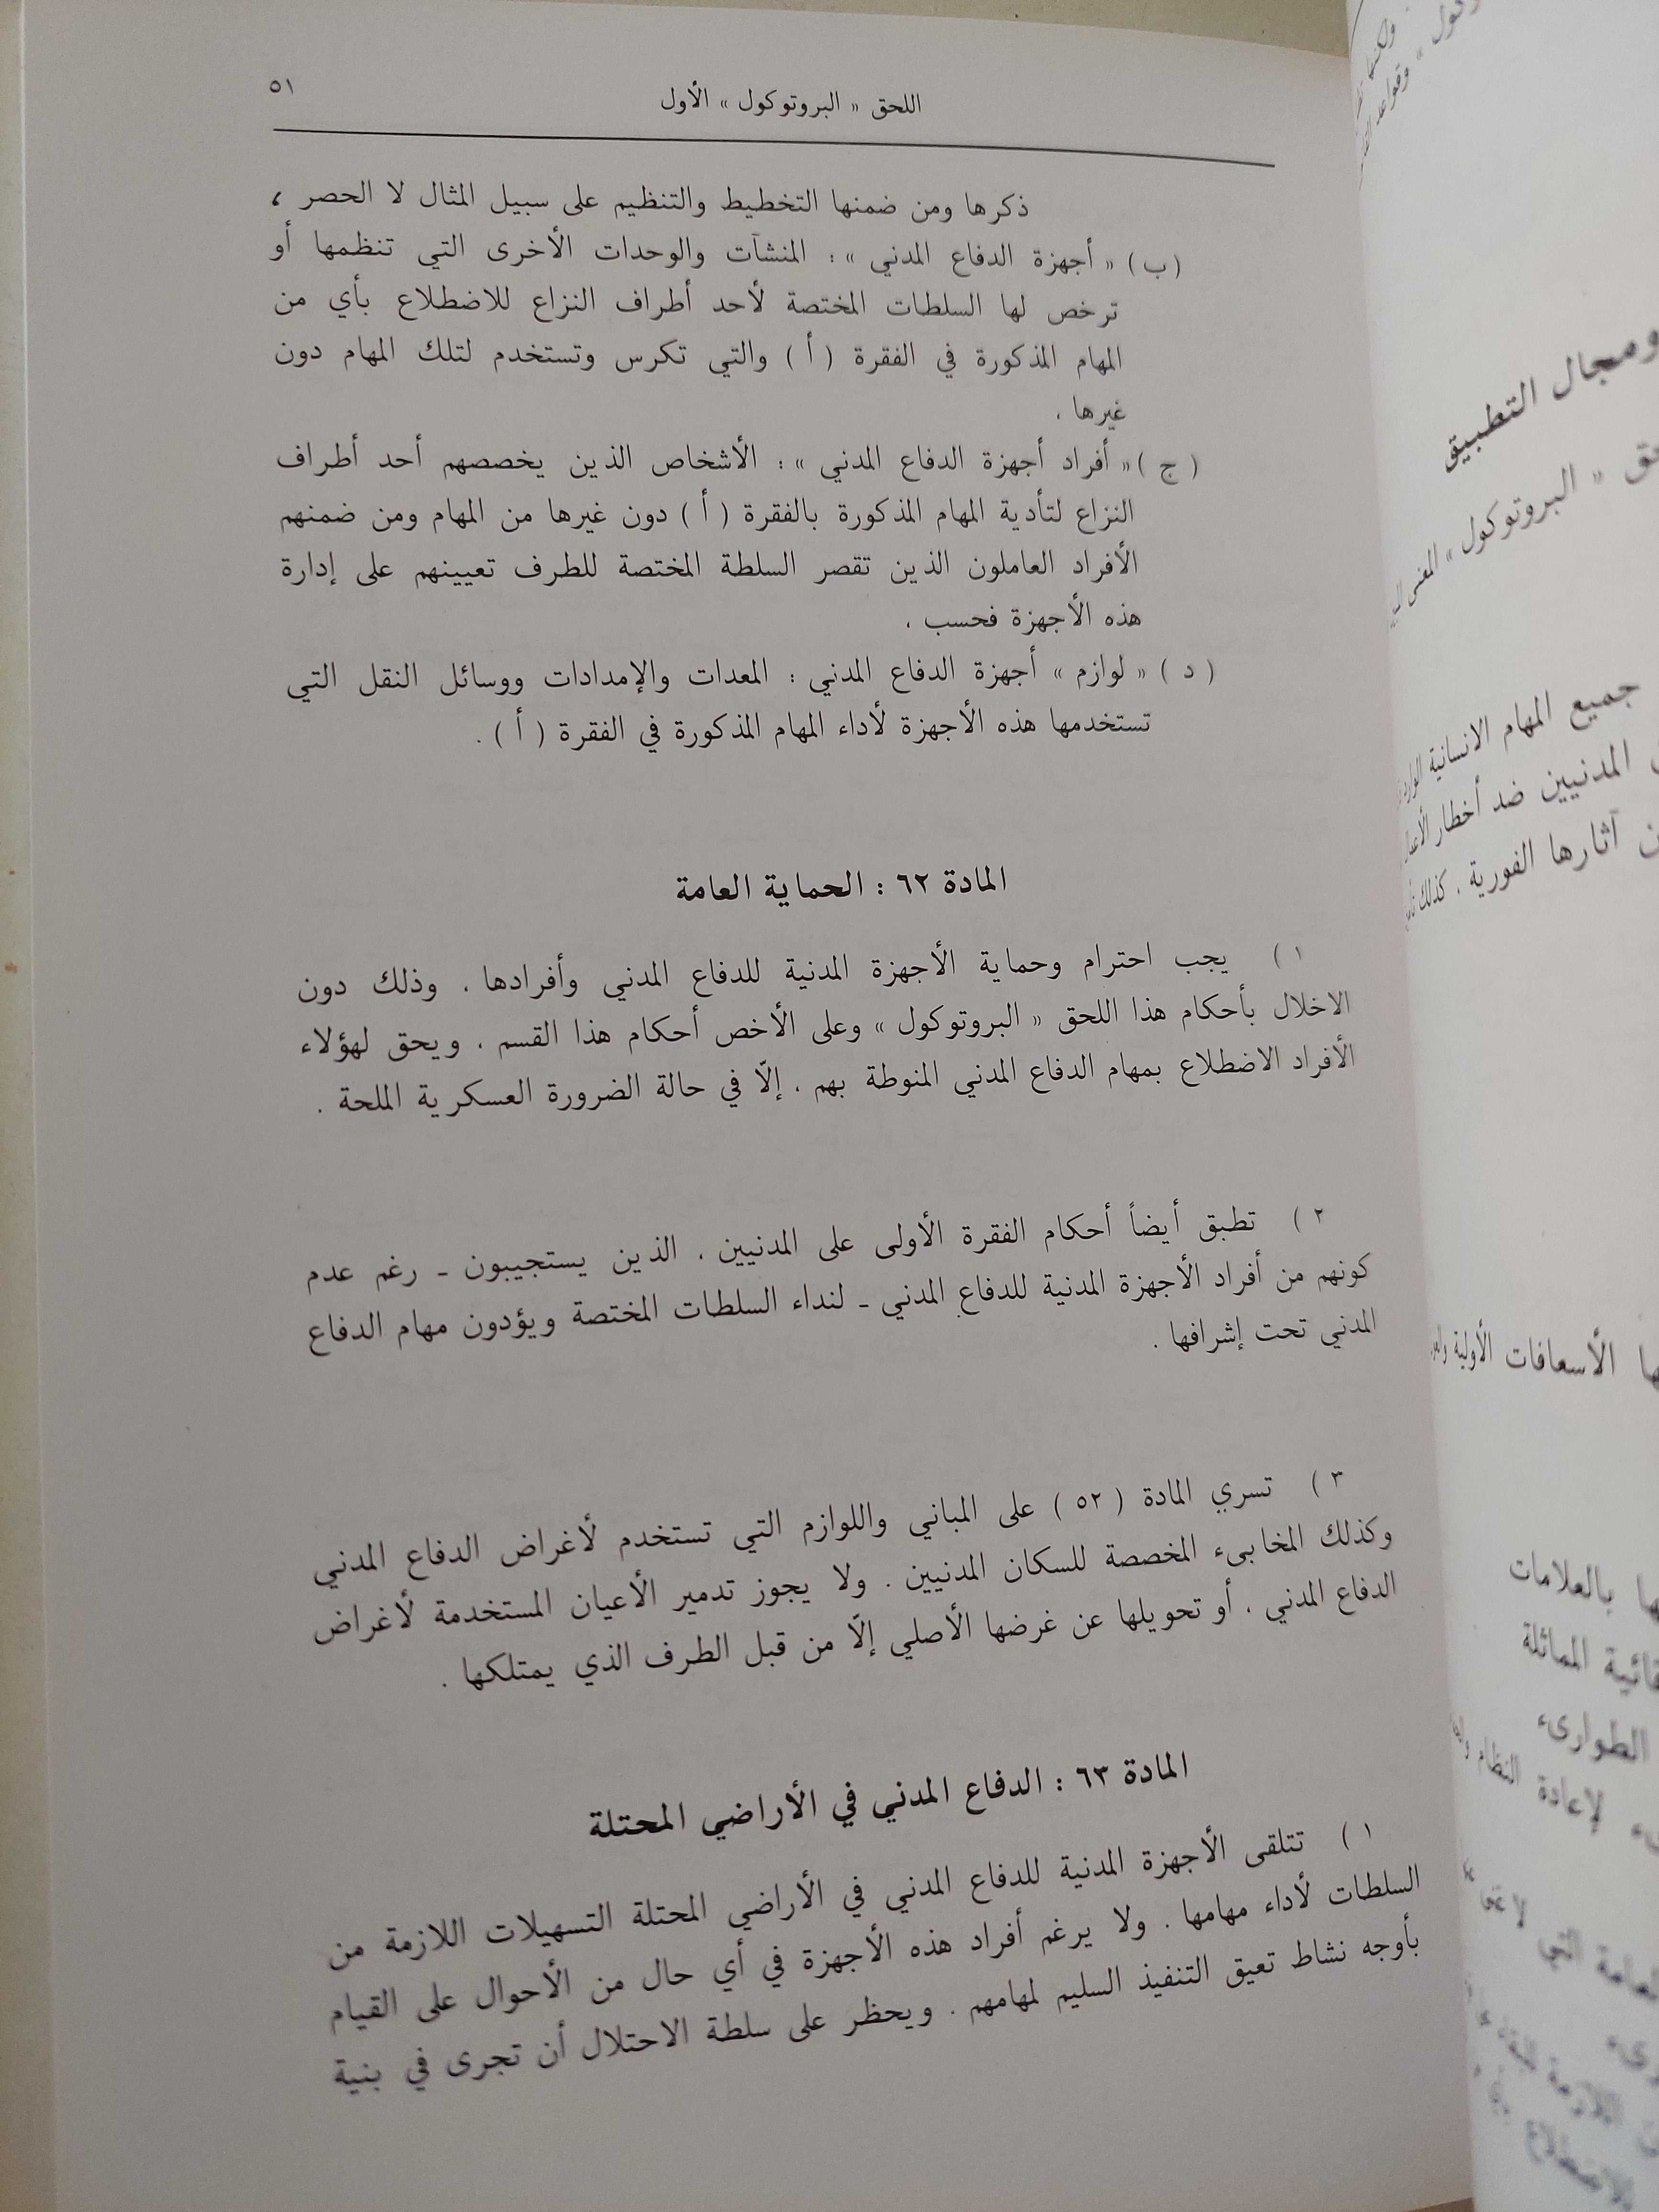 اللحق « البروتوكول » الأول
٥١
ذكرها ومن ضمنها التخطيط والتنظيم على سبيل المثال لا الحصر ،
(ب) « أجهزة الدفاع المدني » : المنشآت والوحدات الأخرى التي تنظمها أو
ترخص لها السلطات المختصة لأحد أطراف النزاع للاضطلاع بأي من
المهام المذكورة في الفقرة ( أ ) والتي تكرس وتستخدم لتلك المهام دون
غيرها .
( ج )« أفراد أجهزة الدفاع المدني » : الأشخاص الذين يخصصهم أحد أطراف
النزاع لتأدية المهام المذكورة بالفقرة ( أ ) دون غيرها من المهام ومن ضمنهم
الأفراد العاملون الذين تقصر السلطة المختصة للطرف تعيينهم على إدارة
هذه الأجهزة فحسب .
( د ) « لوازم » أجهزة الدفاع المدني : المعدات والإمدادات ووسائل النقل التي
تستخدمها هذه الأجهزة لأداء المهام المذكورة في الفقرة ( أ ) .
المادة ٦٢ : الحماية العامة
١ ) يجب احترام وحماية الأجهزة المدنية للدفاع المدني وأفرادها . وذلك دون
الاخلال بأحكام هذا اللحق « البروتوكول » وعلى الأخص أحكام هذا القسم . ويحق لهؤلاء
الأفراد الاضطلاع بمهام الدفاع المدني المنوطة بهم . إلّا في حالة الضرورة العسكرية الملحة .
٢ ) تطبق أيضاً أحكام الفقرة الأولى على المدنيين . الذين يستجيبون - رغم عدم
كونهم من أفراد الأجهزة المدنية للدفاع المدني - لنداء السلطات المختصة ويؤدون مهام الدفاع
المدني تحت إشرافها .
٣ ) تسري المادة ( ٥٢ ) على المباني واللوازم التي تستخدم لأغراض الدفاع المدني
وكذلك المخابىء المخصصة للسكان المدنيين . ولا يجوز تدمير الأعيان المستخدمة لأغراض
الدفاع المدني . أو تحويلها عن غرضها الأصلي إلّا من قبل الطرف الذي يمتلكها .
المادة ٦٣ : الدفاع المدني في الأراضي المحتلة
١ ) تتلقى الأجهزة المدنية للدفاع المدني في الأراضي المحتلة التسهيلات اللازمة من
السلطات لأداء مهامها . ولا يرغم أفراد هذه الأجهزة في أي حال من الأحوال على القيام
بأوجه نشاط تعيق التنفيذ السليم لمهامهم . ويحظر على سلطة الاحتلال أن تجرى في بنية
ومجال التطبيق
« البروتوكول » المعنى
جميع المهام الانسانية
المدنيين ضد أخطار
آثارها الفورية . كذلك
الأسعافات الأولية
بالعلامات
المماثلة
الطوارىء
لإعادة النظام